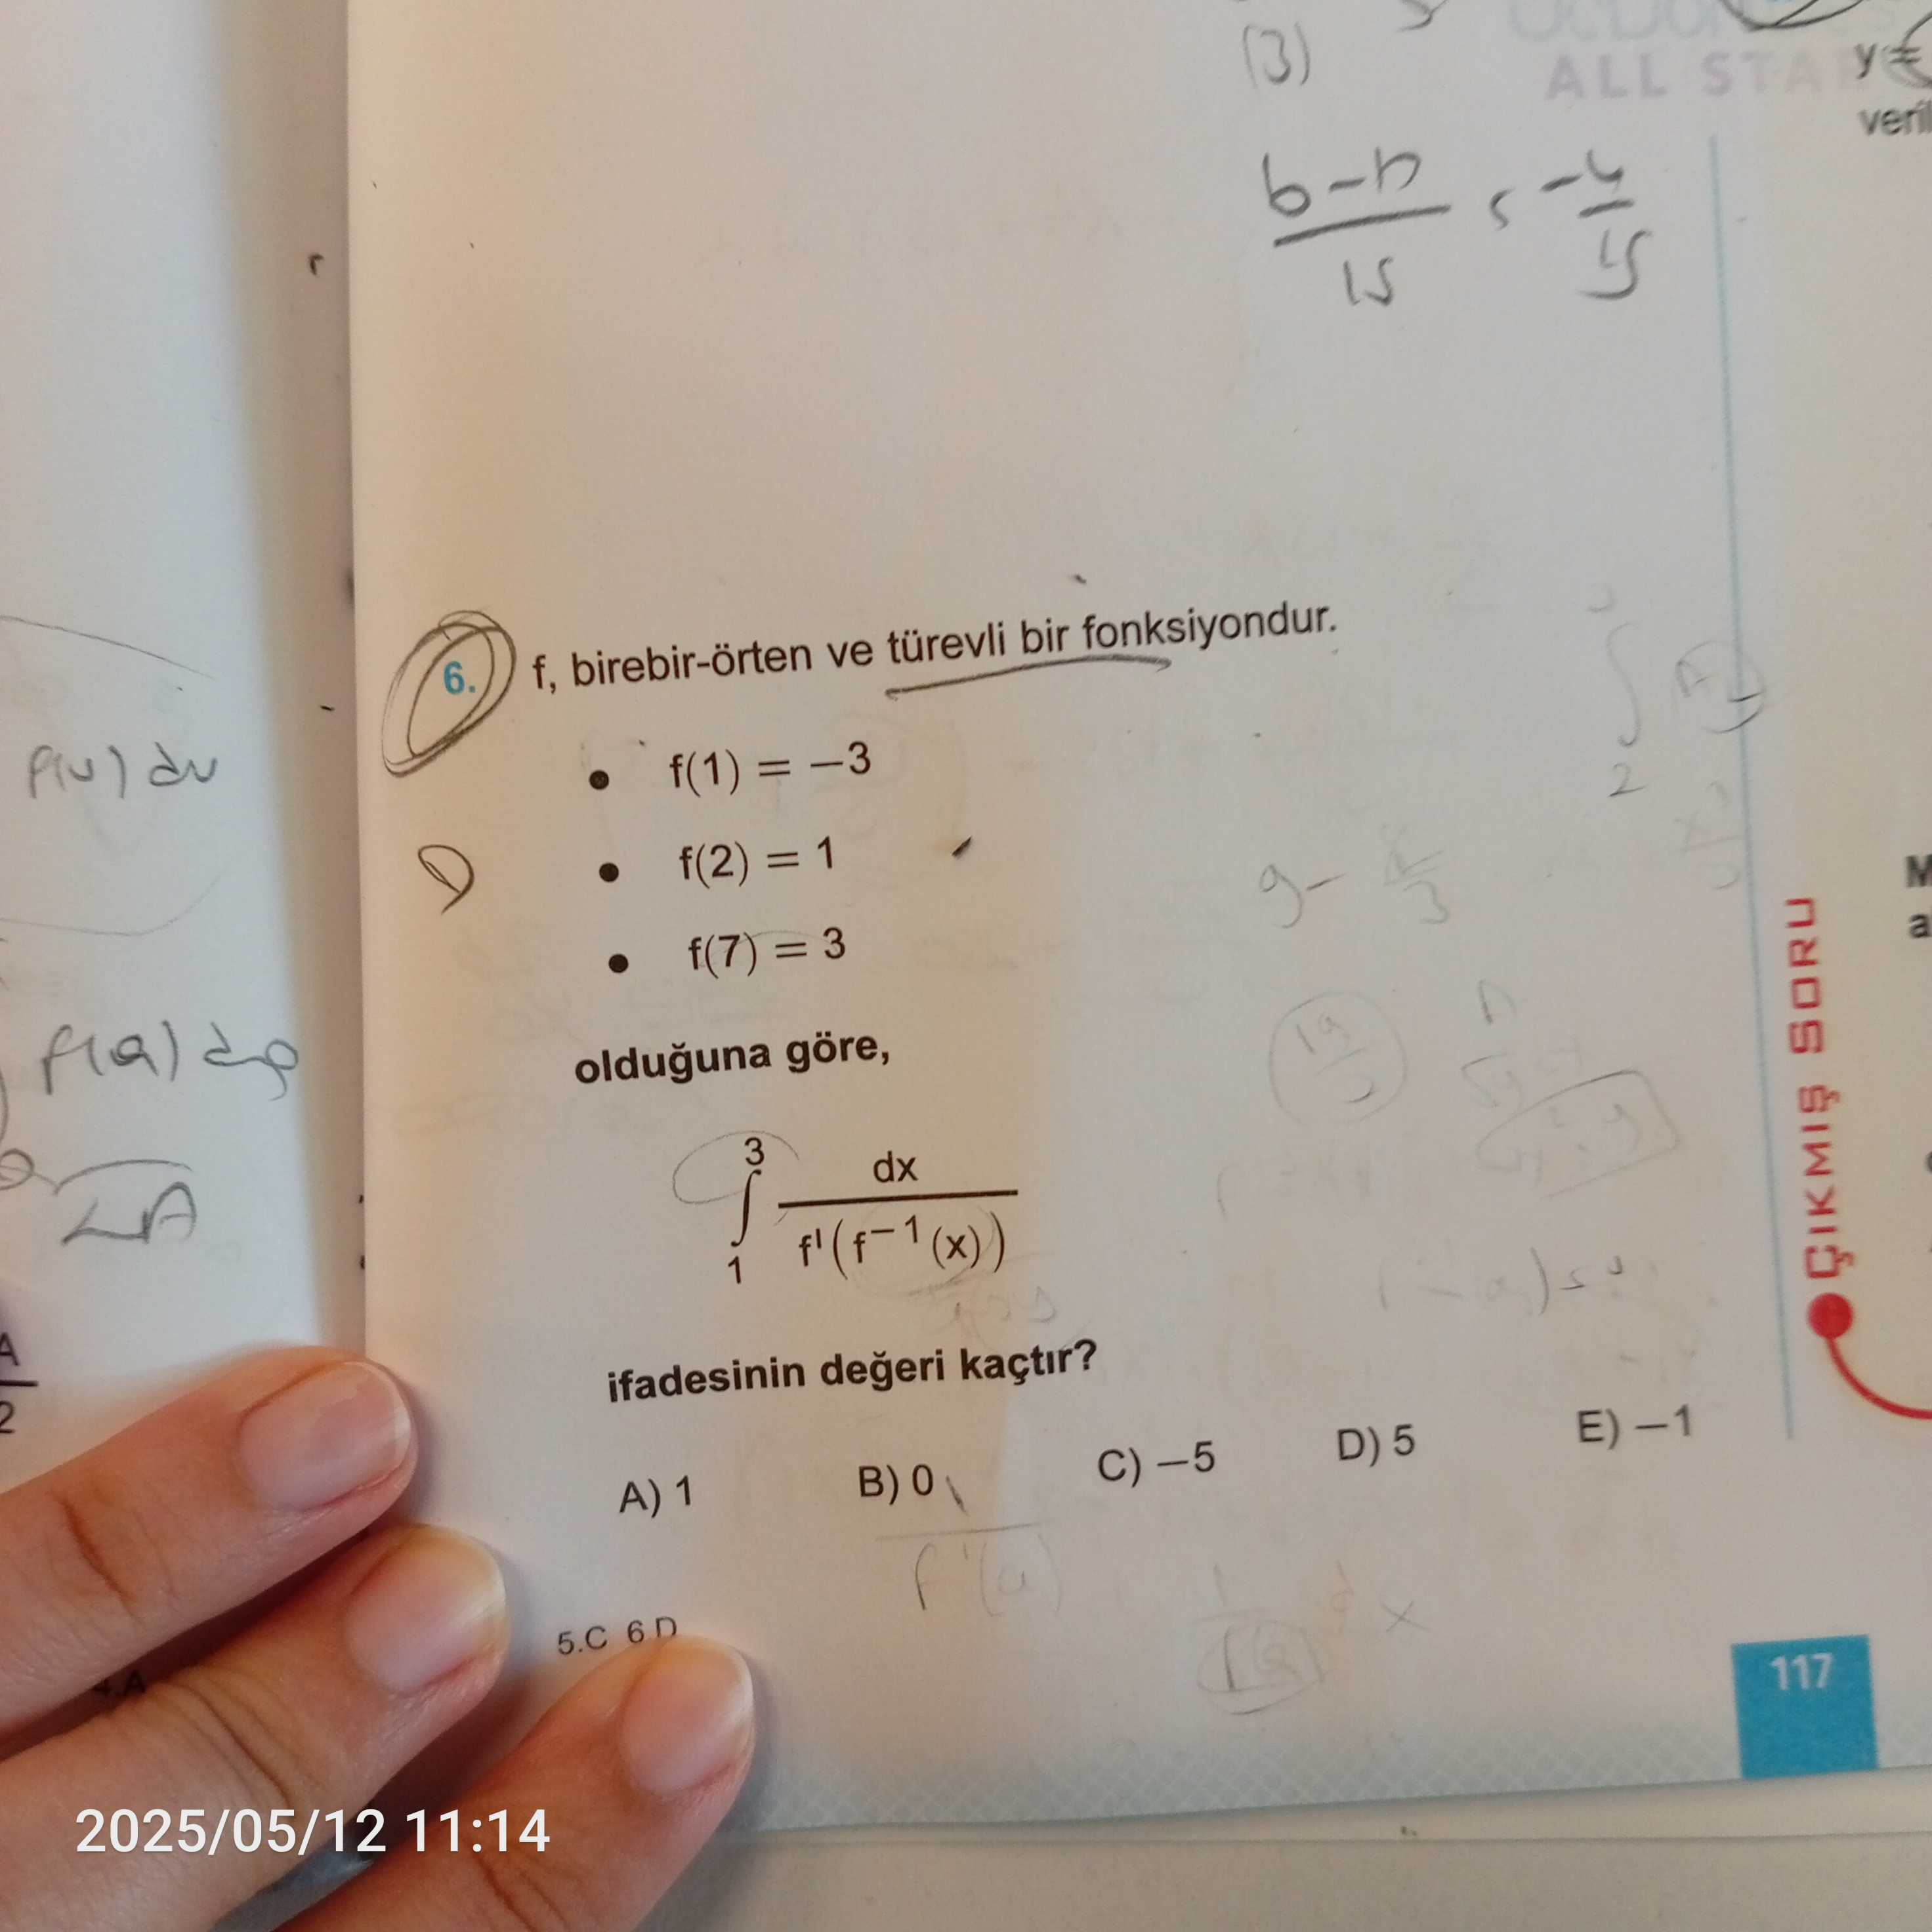 (3)
ALL STAR
y =
veril
b-n
15
-4
15
6. f, birebir-örten ve türevli bir fonksiyondur.
• f(1) = −3
• f(2) = 1
• f(7) = 3
olduğuna göre,
3
∫ dx / f'(f⁻¹(x))
1
ifadesinin değeri kaçtır?
A) 1 B) 0 C) −5 D) 5 E) −1
5.C 6 D
4.A
117
ÇIKMIŞ SORU
f(u) du
f(a) da
A
2
M
a
2
f'(a)
2025/05/12 11:14